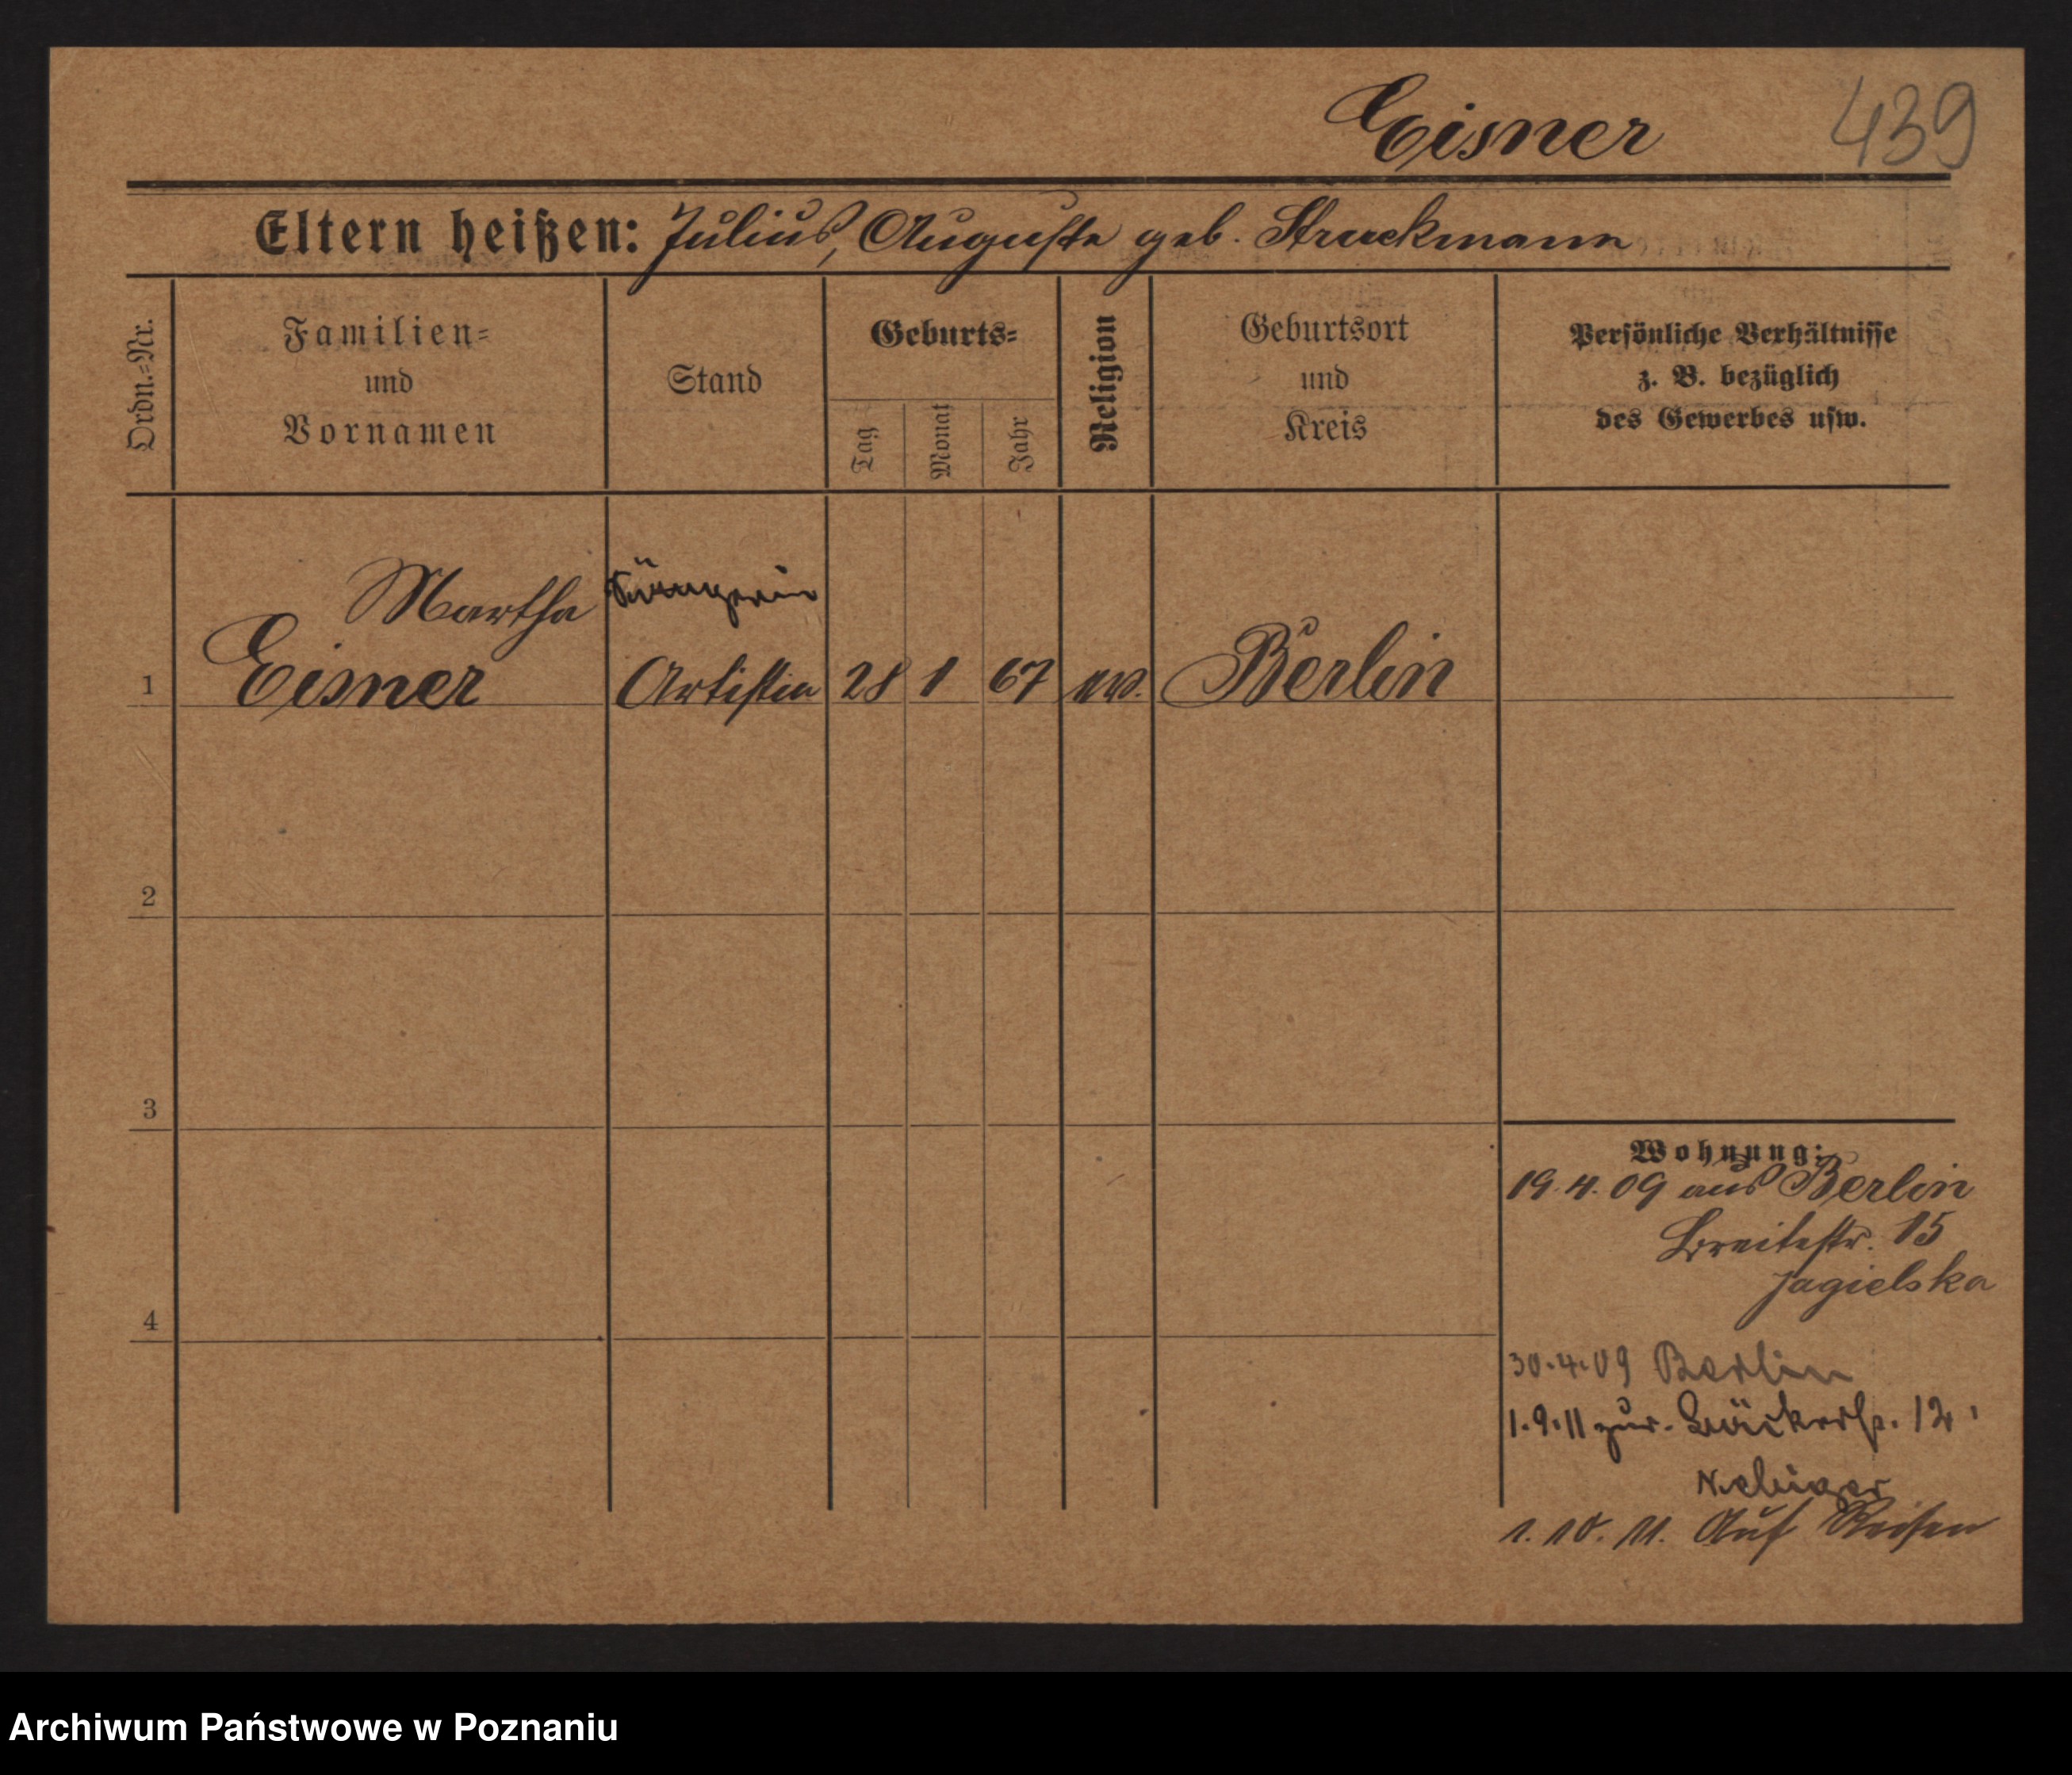 Eisner 439
Eltern heißen: Julius, Auguste geb. Struckmann
Ordn.-Nr.
Familien-
und
Vornamen
Stand
Geburts-
Tag
Monat
Jahr
Religion
Geburtsort
und
Kreis
Persönliche Verhältnisse
z. B. bezüglich
des Gewerbes usw.
Martha Sängerin
1 Eisner Artistin 28 1 67 ev. Berlin
2
3
4
Wohnung:
19.4.09 aus Berlin
Breitestr. 15
Jagielska
30.4.09 Berlin
1.9.11 zur. Bäckerstr. 12
1.10.11. Auf Reisen
Archiwum Państwowe w Poznaniu